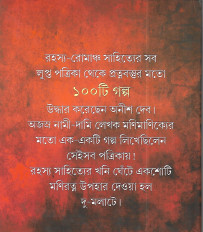 রহস্য-রোমাঞ্চ সাহিত্যের সব
লুপ্ত পত্রিকা থেকে প্রত্নবস্তুর মতো
১০০টি গল্প
উদ্ধার করেছেন অনীশ দেব।
অজস্র নামী-দামি লেখক মণিমাণিক্যের
মতো এক-একটি গল্প লিখেছিলেন
সেইসব পত্রিকায়।
রহস্য সাহিত্যের খনি ঘেঁটে একশোটি
মণিরত্ন উপহার দেওয়া হল
দু-মলাটে।